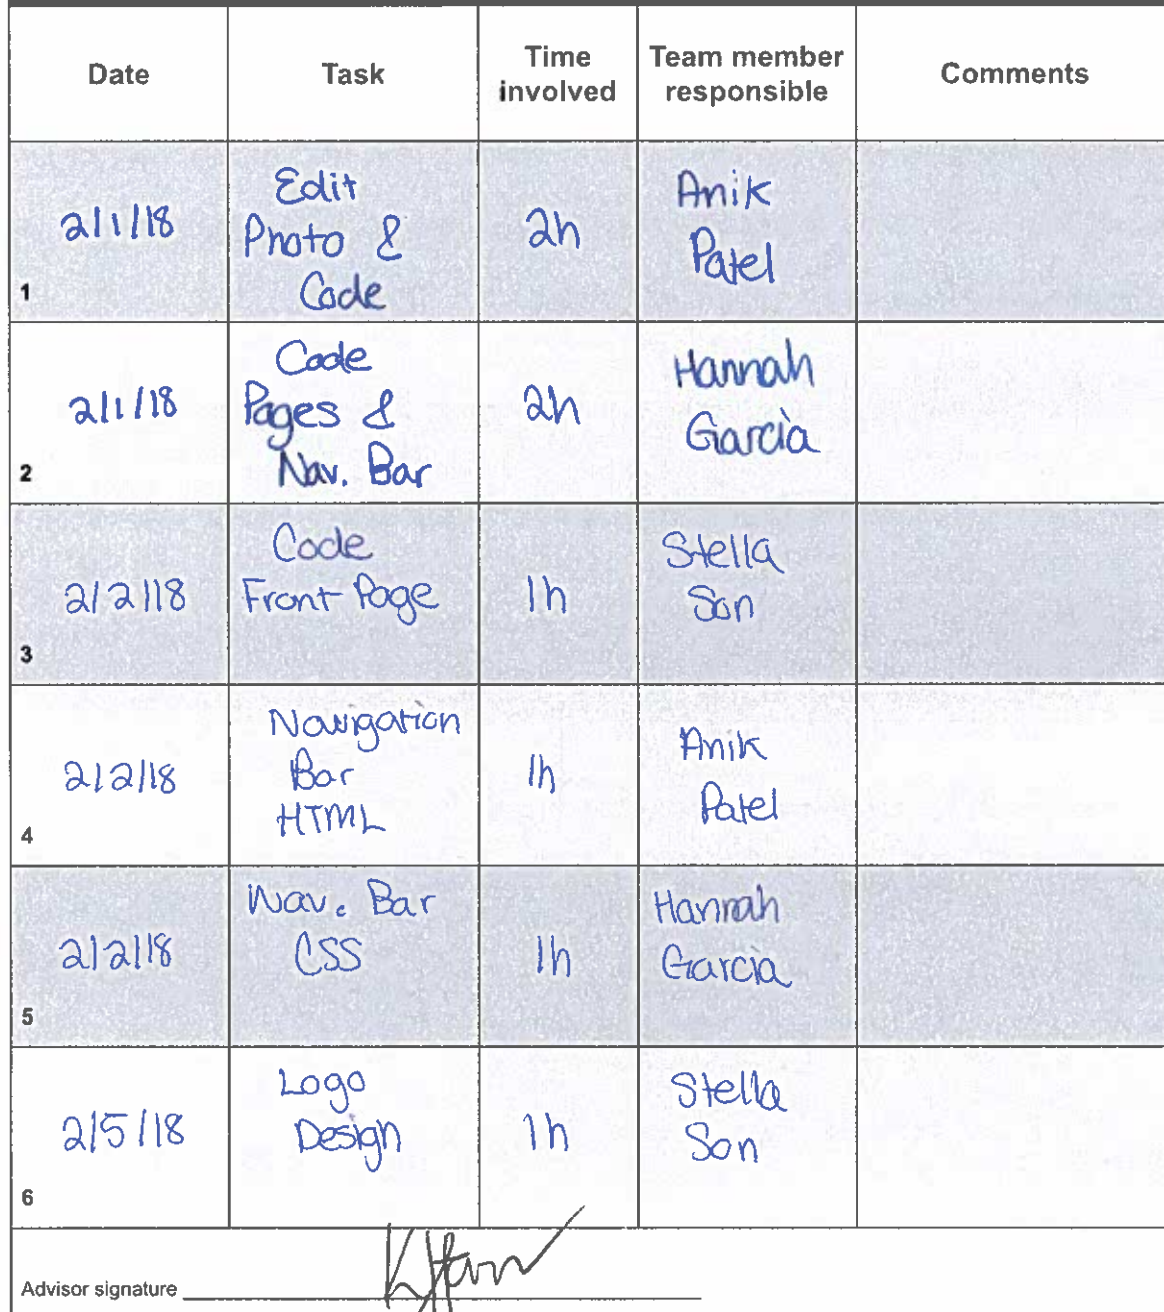 Date
Task
Time
involved
Team member
responsible
Comments
1
2/1/18
Edit
Photo &
Code
2h
Anik
Patel
2
2/1/18
Code
Pages &
Nav. Bar
2h
Hannah
Garcia
3
2/2/18
Code
Front Page
1h
Stella
Son
4
2/2/18
Navigation
Bar
HTML
1h
Anik
Patel
5
2/2/18
Nav. Bar
CSS
1h
Hannah
Garcia
6
2/5/18
Logo
Design
1h
Stella
Son
Advisor signature